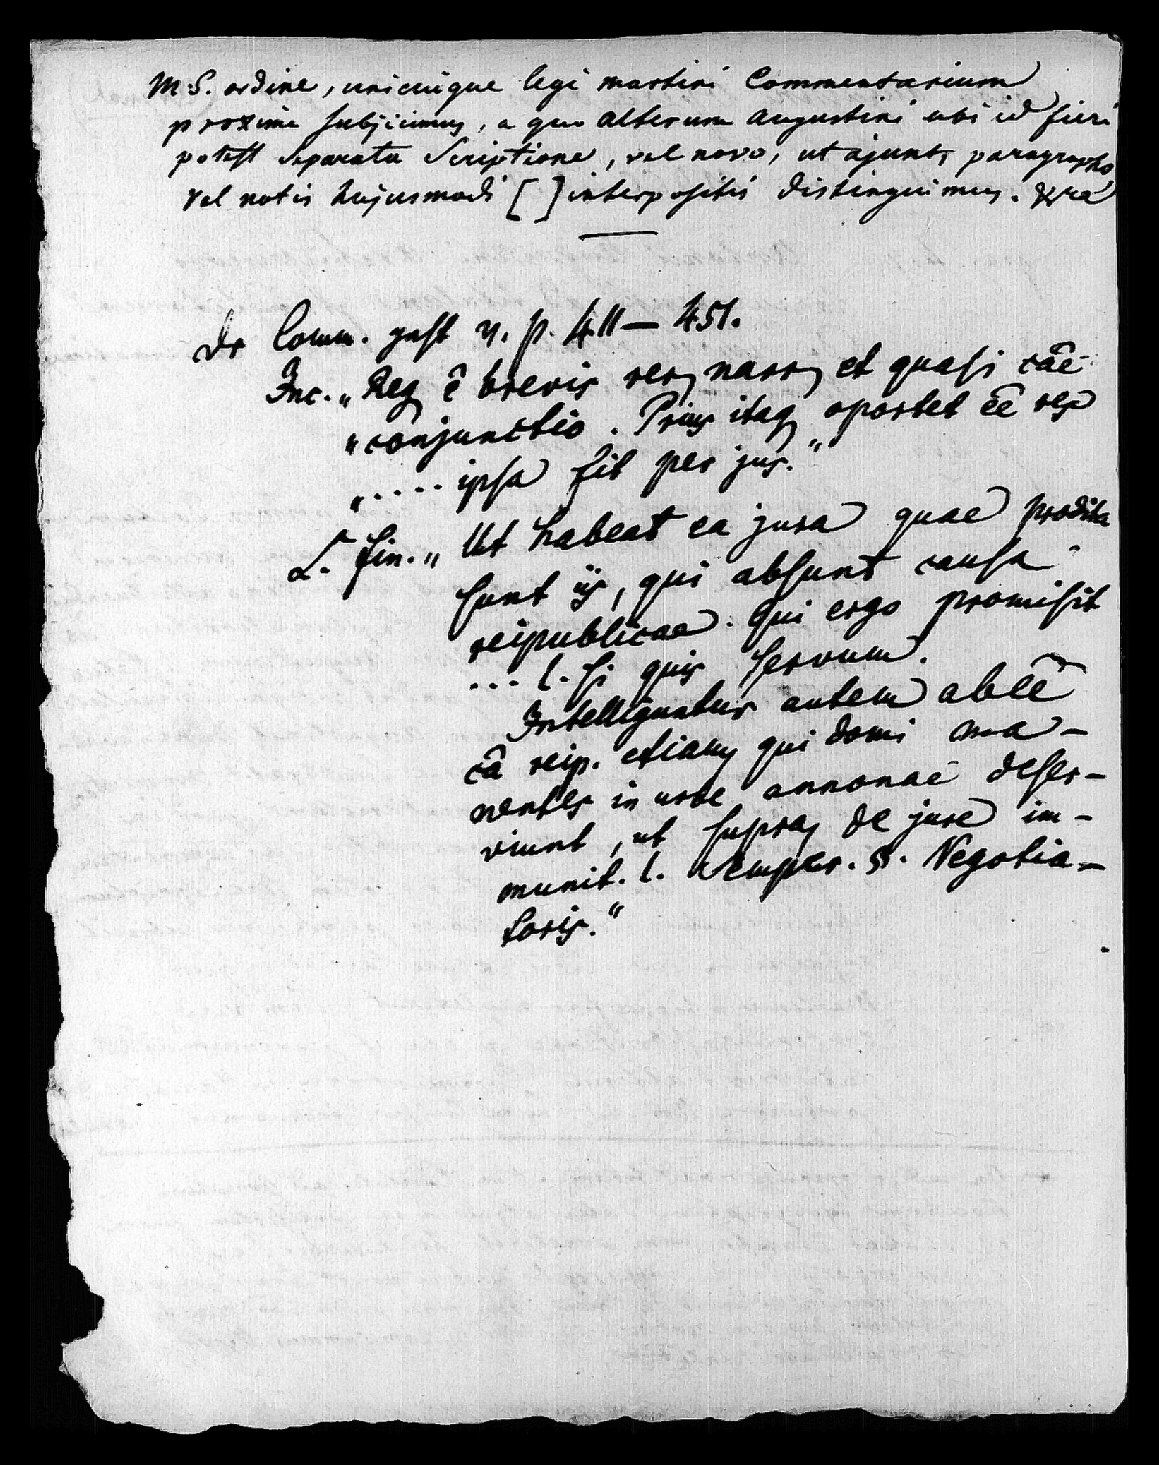 M.S. ordine, unicuique legi martini Commentarium
proxime subjicimus, a quo alterum Augustini ubi id fieri
potest separata Scriptione, vel novo, ut ajunt, paragrapho
vel notis hujusmodi [ ] interpositis distinguimus.
Comm. geht v. p. 411 — 451.
Inc. „ Reg ē brevis rerz narrz et quasi cāe
„ conjunctio. Prius itaqz oportet ēē res
„ ..... ipsa fit per jus.“
L. fin. „ Ut habeat ea jura quae prodita
sunt ijs, qui absunt causa
reipublicae. Qui ergo promisit
... l. si quis servum.
Intelliguntur autem abēē
cā reip. etiam qui domi ma-
nentes in urbe annonae deser-
viunt, ut supra de jure im-
munit. l. Semper. §. Negotia-
toris.“